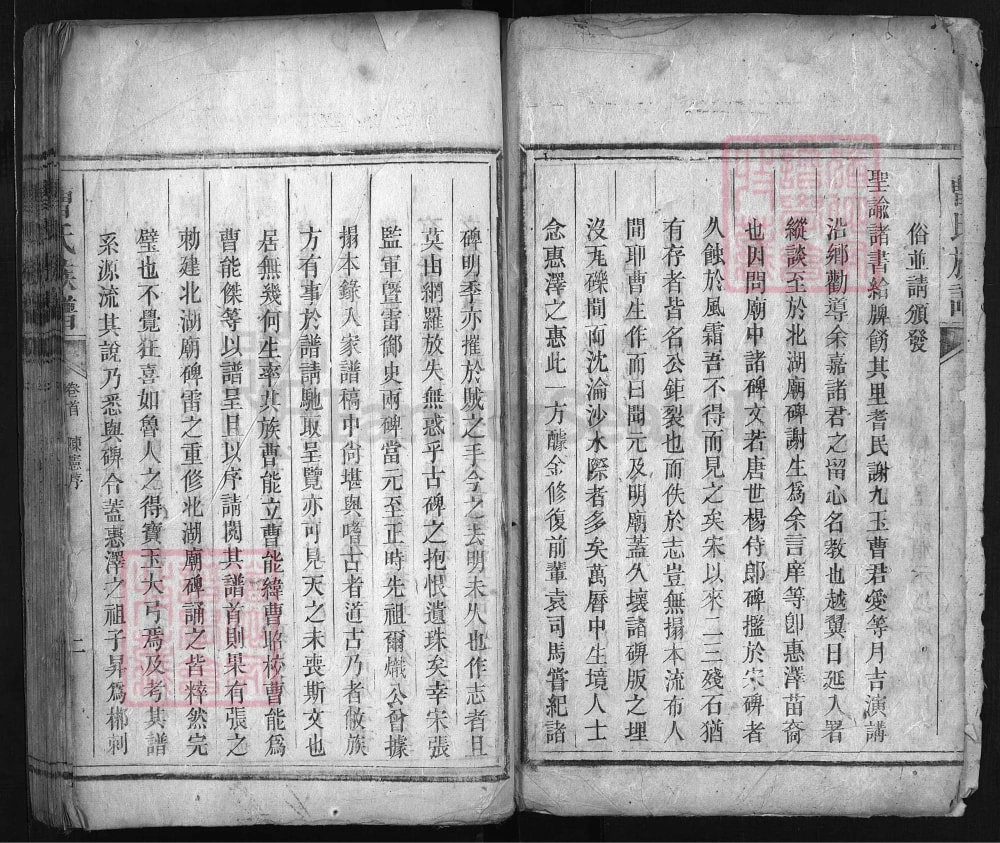 俗並請頒發
聖諭諸書給牌飭其里耆民謝九玉曹君愛等月吉演講
沿鄉勸導余嘉諸君之留心名教也越翼日延入署
縱談至於北湖廟碑謝生為余言庠等卽惠澤苗裔
也因問廟中諸碑文若唐世楊侍郎碑搵於宋碑者
久蝕於風霜吾不得而見之矣宋以來二三殘石猶
有存者皆名公鉅裂也而佚於志豈無搨本流布人
間耶曹生作而曰聞元及明廟蓋久壞諸碑版之埋
沒瓦礫間而沈淪沙水際者多矣萬曆中生境人士
念惠澤之惠此一方醵金修復前輩袁司馬嘗紀諸
碑明季亦摧於賊之手今之去明未久也作志者且
莫由網羅放失無惑乎古碑之抱恨遺珠矣幸宋張
監軍曁雷御史兩碑當元至正時先祖爾熾公會據
搨本錄入家譜稿中尙堪與嗜古者道古乃者敝族
方有事於譜請馳取呈覽亦可見天之未喪斯文也
居無幾何生率其族曹能立曹能緯曹昭校曹能為
曹能傑等以譜呈且以序請閱其譜首則果有張之
勅建北湖廟碑雷之重修北湖廟碑誦之皆粹然完
璧也不覺狂喜如魯人之得寶玉大弓焉及考其譜
系源流其說乃悉與碑合蓋惠澤之祖子昇為郴刺
曹氏族譜
卷首
陳憲序
二